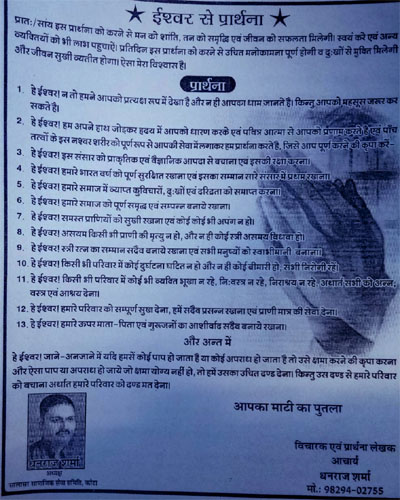 ★ ईश्वर से प्रार्थना ★
प्रातः/सांय इस प्रार्थना को करने से मन को शांति, तन को समृद्धि एवं जीवन को सफलता मिलेगी। स्वयं करे एवं अन्य
व्यक्तियों को भी लाभ पहुंचाऐं। प्रतिदिन इस प्रार्थना को करने से उचित मनोकामना पूर्ण होगी व दुःखों से मुक्ति मिलेगी
और जीवन सुखी व्यतीत होगा। ऐसा मेरा विश्वास है।
प्रार्थना
1. हे ईश्वर! न तो हमने आपको प्रत्यक्ष रूप में देखा है और न ही आपका धाम जानते हैं। किन्तु आपको महसूस जरूर कर
सकते है।
2. हे ईश्वर! हम अपने हाथ जोड़कर हृदय में आपको धारण करके एवं पवित्र आत्मा से आपको प्रणाम करते है एवं पाँच
तत्वों के इस नश्वर शरीर को पूर्ण रूप से आपकी सेवा में लगाकर हम प्रार्थना करते है, जिसे आप पूर्ण करने की कृपा करे-
3. हे ईश्वर! इस संसार को प्राकृतिक एवं वैज्ञानिक आपदा से बचाना एवं इसकी रक्षा करना।
4. हे ईश्वर! हमारे भारत वर्ष को पूर्ण सुरक्षित रखाना एवं इसका सम्मान सारे संसार में प्रथम रखाना।
5. हे ईश्वर! हमारे समाज में व्याप्त कुविचारों, दुःखों एवं दरिद्रता को समाप्त करना।
6. हे ईश्वर! हमारे समाज को पूर्ण समृद्ध एवं सम्पन्न बनाये रखाना।
7. हे ईश्वर! समस्त प्राणियों को सुखी रखाना एवं कोई कोई भी अपंग न हो।
8. हे ईश्वर! असयम किसी भी प्राणी की मृत्यु न हो, और न ही कोई स्त्री असमय विधवा हो।
9. हे ईश्वर! स्त्री रत्न का सम्मान सदैव बनाये रखाना एवं सभी मनुष्यों को स्वाभीमानी बनाना।
10. हे ईश्वर! किसी भी परिवार में कोई दुर्घटना घटित न हो और न ही कोई बीमारी हो, सभी निरोगी रहे।
11. हे ईश्वर! किसी भी परिवार में कोई भी व्यक्ति भूखा न रहे, निःवस्त्र न रहे, निराश्रय न रहे, अर्थात सभी को अन्न,
वस्त्र एवं आश्रय देना।
12. हे ईश्वर! हमारे परिवार को सम्पूर्ण सुख देना, हमें सदैव प्रसन्न रखाना एवं प्राणी मात्र की सेवा देना।
13. हे ईश्वर! हमारे ऊपर माता-पिता एवं गुरूजनों का आर्शीवाद सदैव बनाये रखाना।
और अन्त में
हे ईश्वर! जाने-अनजाने में यदि हमसें कोई पाप हो जाता है या कोई अपराध हो जाता है तो उसे क्षमा करने की कृपा करना
और ऐसा पाप या अपराध हो जाये जो क्षमा योग्य नहीं हो, तो हमें उसका उचित दण्ड देना। किन्तु उस दण्ड से हमारे परिवार
को बचाना अर्थात हमारे परिवार को दण्ड मत देना।
आपका माटी का पुतला
विचारक एवं प्रार्थना लेखक
आचार्य
धनराज शर्मा
मो.: 98294-02755
धनराज शर्मा
अध्यक्ष
सामाजिक सेवा समिति, कोटा